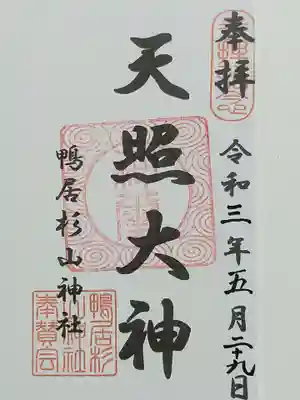 奉拝
令和三年五月二十九日
天照大神
鴨居杉山神社
鴨居杉
山神社
奉賛会